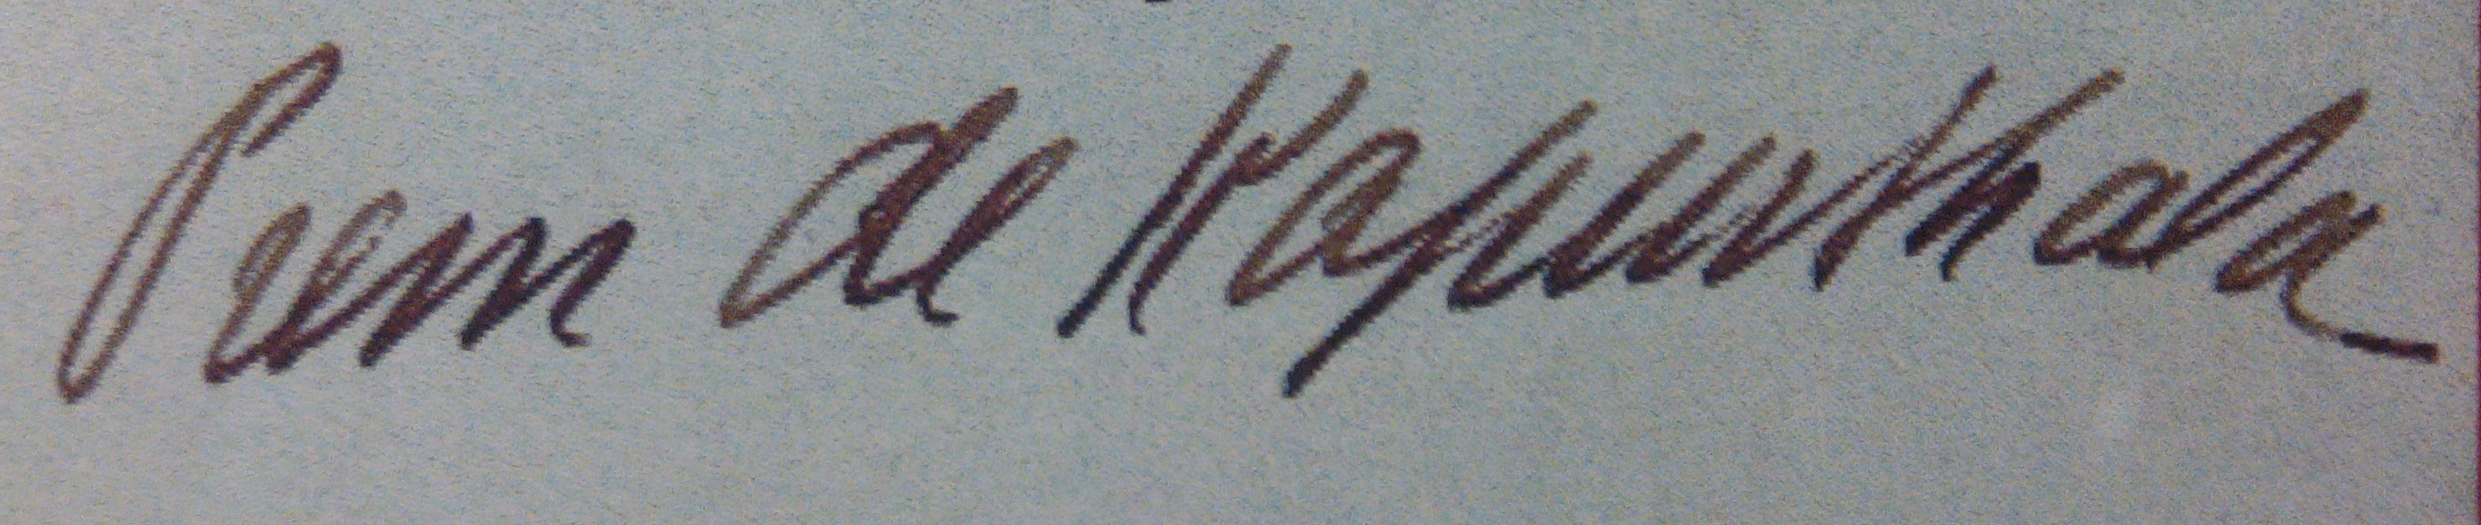 Prem de Kapurthala